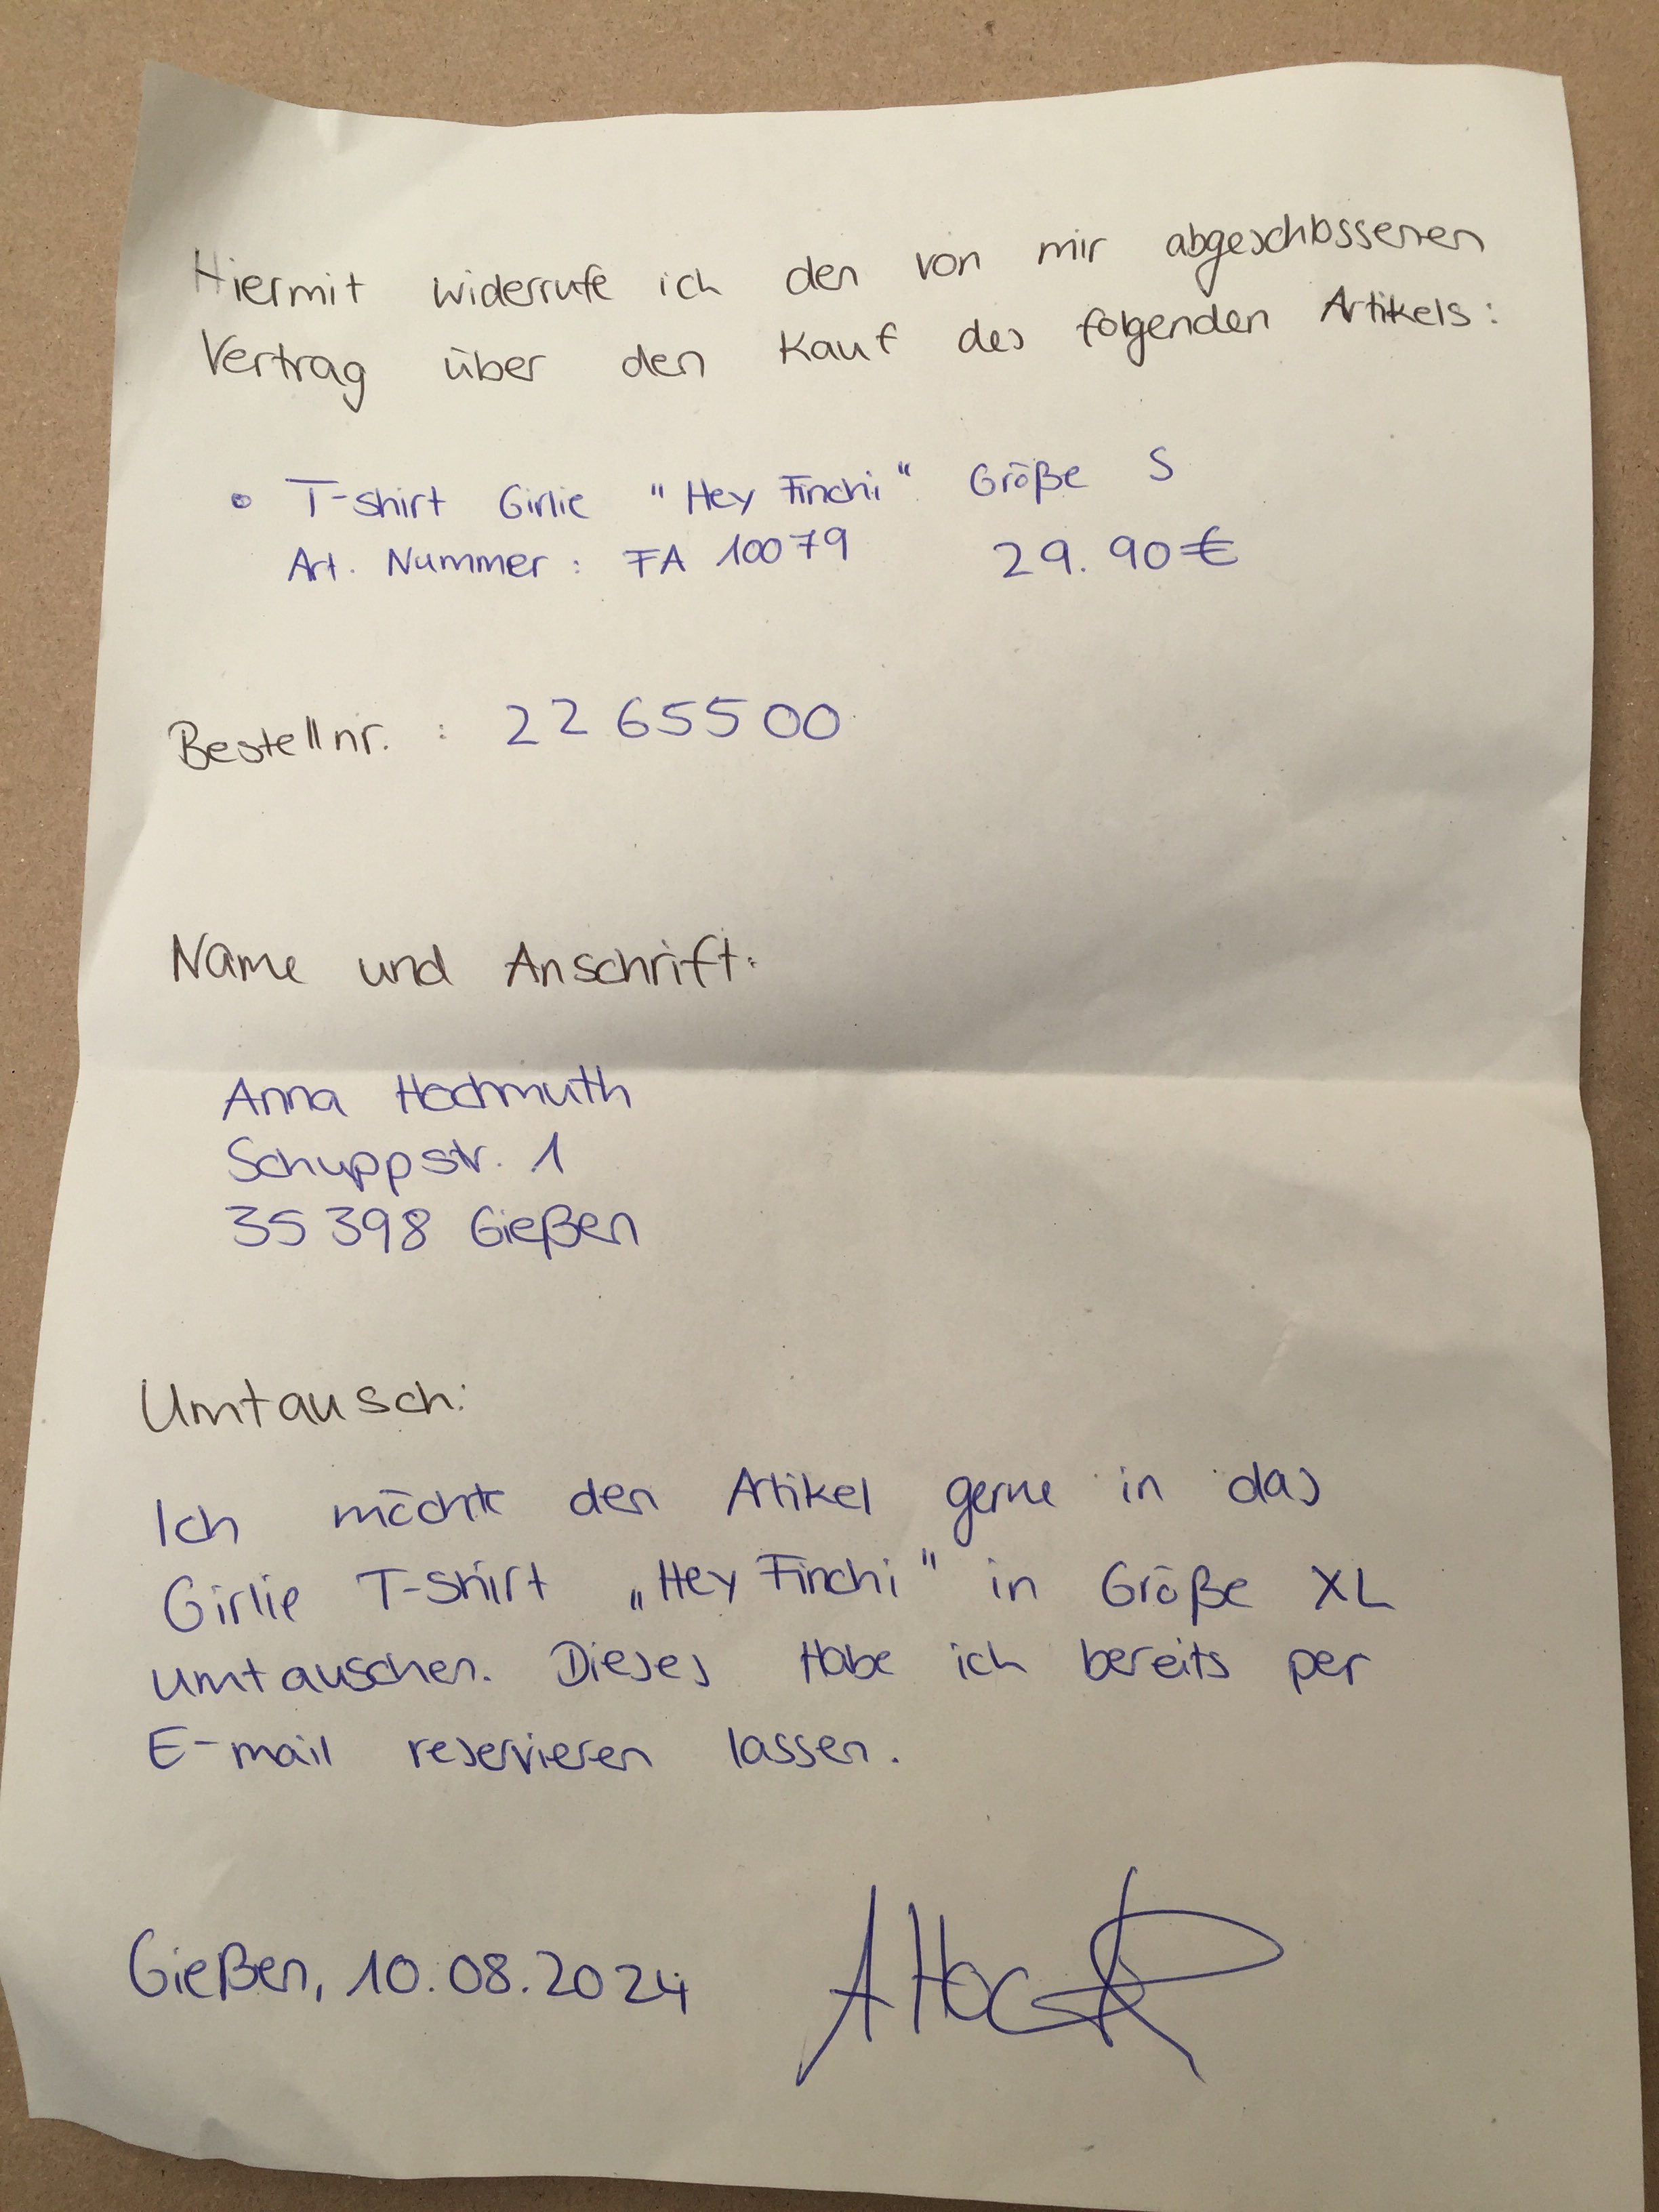 Hiermit widerrufe ich den von mir abgeschlossenen
Vertrag über den Kauf des folgenden Artikels:
• T-shirt Girlie "Hey Finchi" Größe S
Art. Nummer: FA 10079 29.90€
Bestellnr. : 2265500
Name und Anschrift:
Anna Hochmuth
Schuppstr. 1
35398 Gießen
Umtausch:
Ich möchte den Artikel gerne in das
Girlie T-shirt „Hey Finchi" in Größe XL
umtauschen. Dieses Habe ich bereits per
E-mail reservieren lassen.
Gießen, 10.08.2024